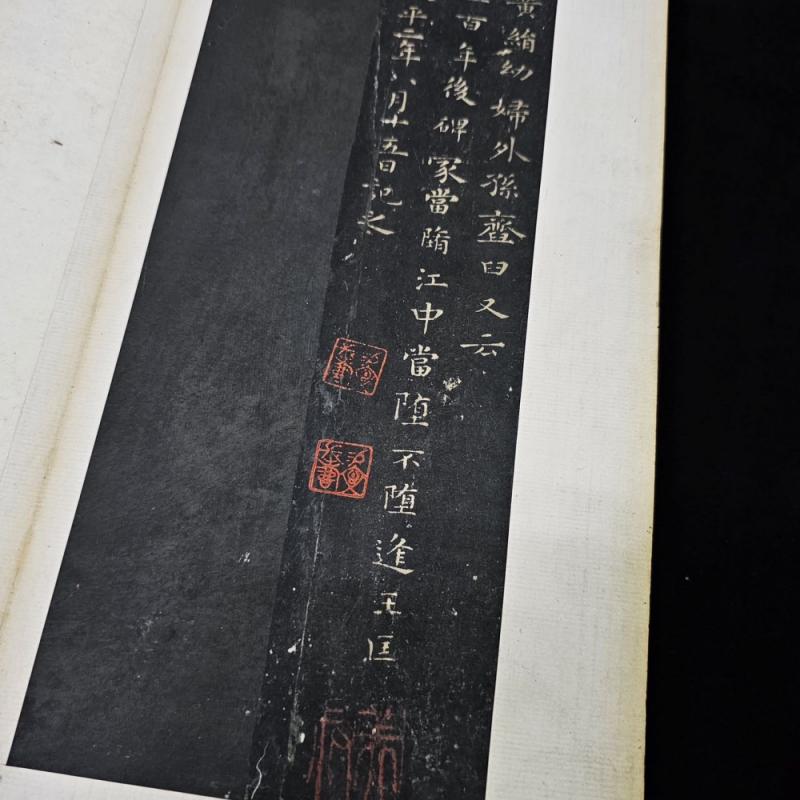 黃絹幼婦外孫齏臼又云
百年後碑冢當墮江中當墮不墮逢王匡
平二年八月十五日記之